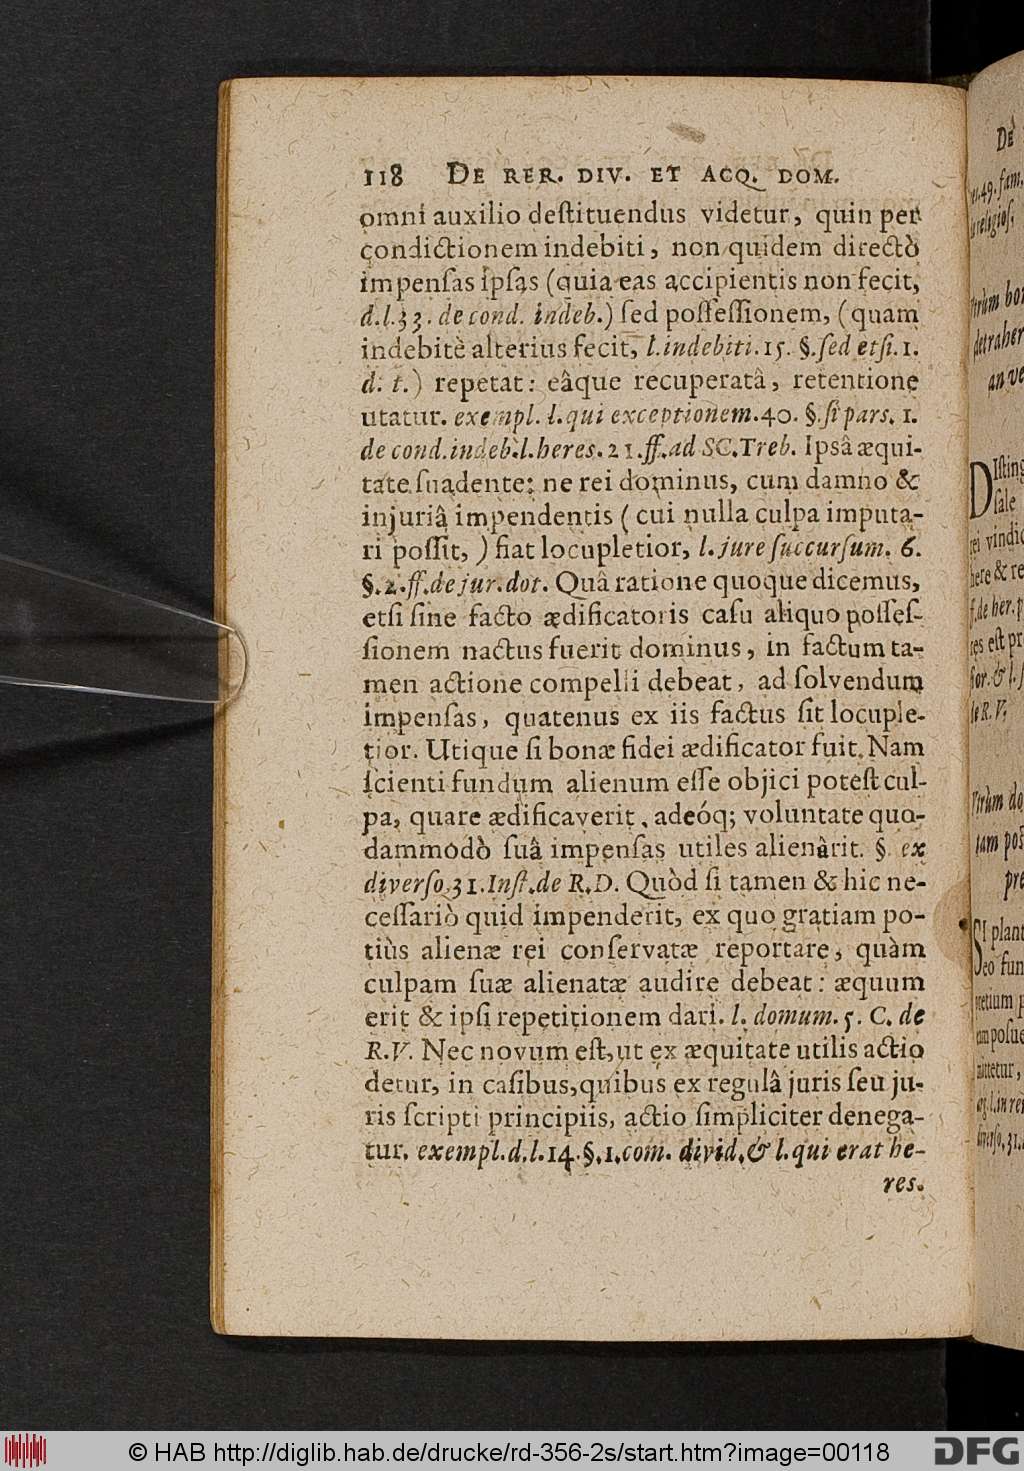 118 DE RER. DIV. ET ACQ. DOM.
omni auxilio deſtituendus videtur, quin per
condictionem indebiti, non quidem directò
impenſas ipſas (quia eas accipientis non fecit,
d.l.33. de cond. indeb.) ſed poſſeſſionem, (quam
indebitè alterius fecit, l.indebiti.15. §.ſed etſi.1.
d. t.) repetat: eâque recuperatâ, retentione
utatur. exempl. l.qui exceptionem.40. §.ſi pars. 1.
de cond.indeb.l.heres.21.ff.ad SC.Treb. Ipsâ æqui-
tate ſuadente: ne rei dominus, cum damno &
injuriâ impendentis ( cui nulla culpa imputa-
ri poſſit, ) fiat locupletior, l.jure ſuccurſum. 6.
§.2.ff.de jur.dot. Quâ ratione quoque dicemus,
etſi ſine facto ædificatoris caſu aliquo poſſeſ-
ſionem nactus fuerit dominus, in factum ta-
men actione compelli debeat, ad ſolvendum
impenſas, quatenus ex iis factus ſit locuple-
tior. Utique ſi bonæ fidei ædificator fuit. Nam
ſcienti fundum alienum eſſe objici poteſt cul-
pa, quare ædificaverit, adeóq; voluntate quo-
dammodò ſuâ impenſas utiles alienârit. §. ex
diverſo.31.Inſt.de R.D. Quòd ſi tamen & hic ne-
ceſſariò quid impenderit, ex quo gratiam po-
tiùs alienæ rei conſervatæ reportare, quàm
culpam ſuæ alienatæ audire debeat: æquum
erit & ipſi repetitionem dari. l. domum. 5. C. de
R.V. Nec novum eſt, ut ex æquitate utilis actio
detur, in caſibus, quibus ex regulâ juris ſeu ju-
ris ſcripti principiis, actio ſimpliciter denega-
tur. exempl.d.l.14.§.1.com. divid.& l.qui erat he-
res.
DE
49. fam.
religioſ.
Utrùm bo
detraher
an ve
DIſting
ſale
rei vindic
here & re
f.de her.p
res eſt pr
ſor. & l.ſ
de R.V.
Utrùm do
tam poſ
pre
SI plant
eo fun
pretium p
impoſue
mittetur,
l.in re
diverſo.31.
© HAB http://diglib.hab.de/drucke/rd-356-2s/start.htm?image=00118
DFG